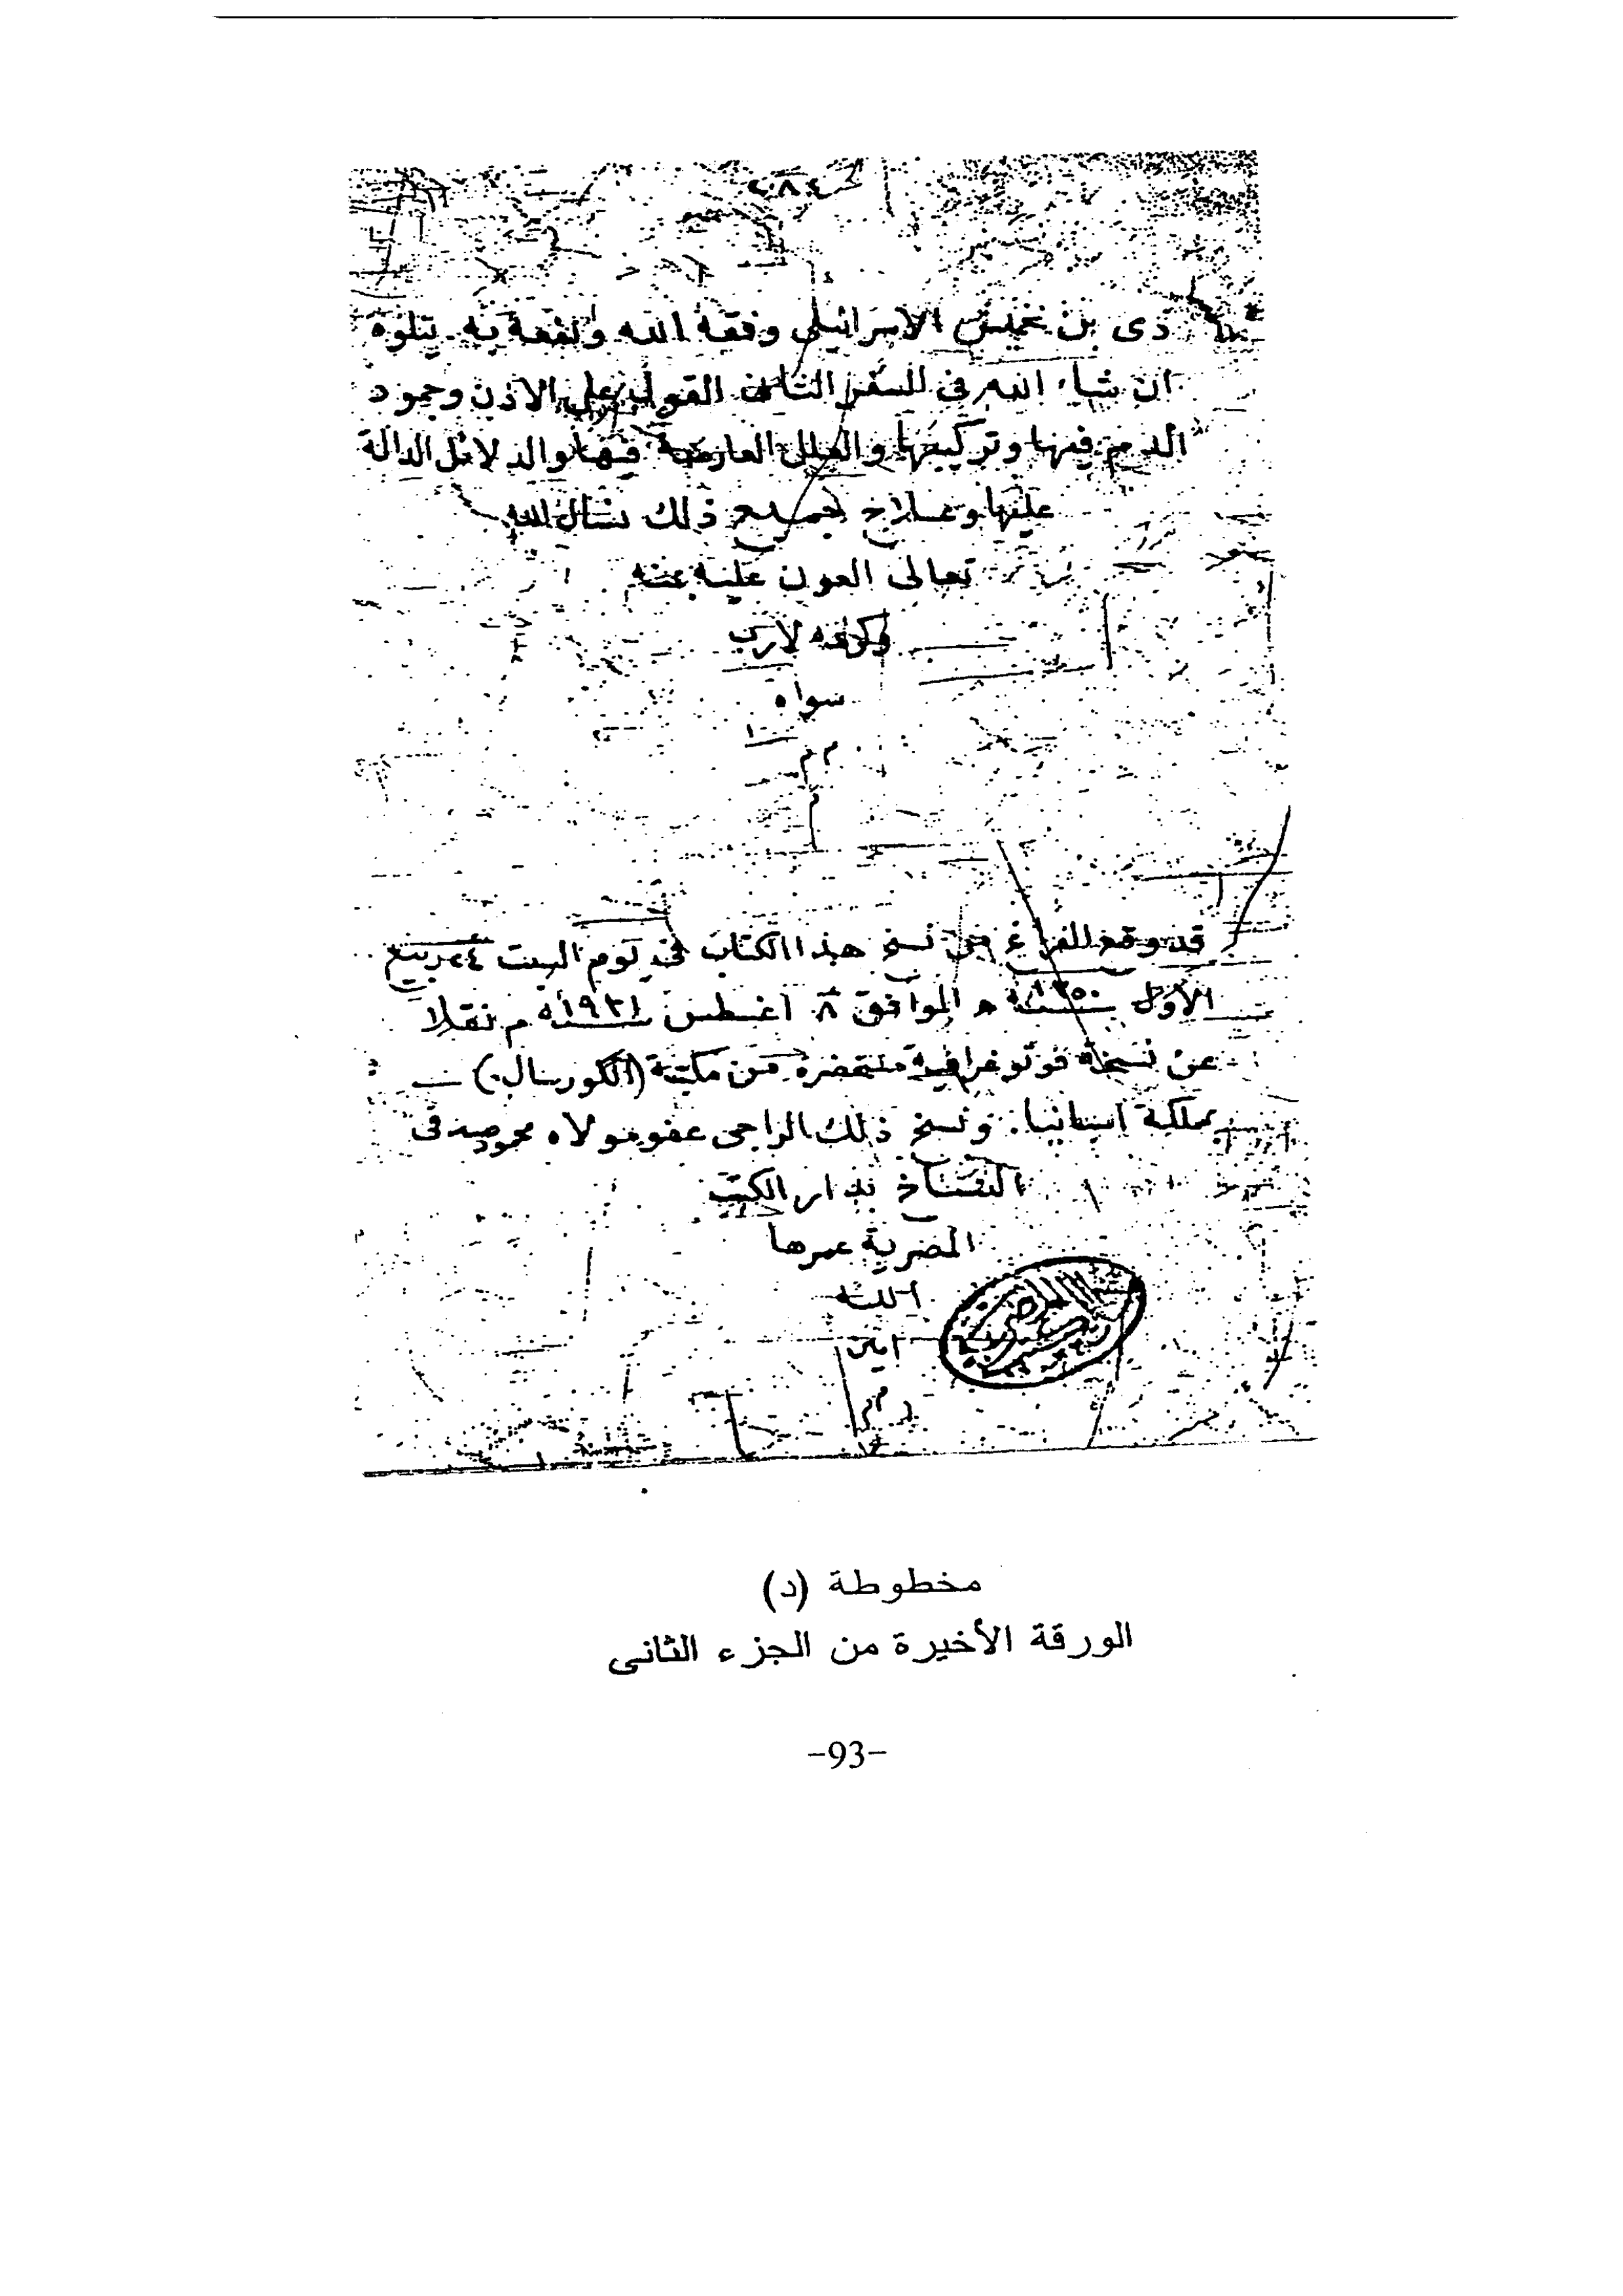 ٢٨٤
دى بن خميس الاسرائيلى وفقه الله ونفعه به. يتلوه
ان شاء الله فى السفر الثانى القول على الاذن وجمود
الدم فيها وتركيبها والعلل العارضة فيها والدلائل الدالة
عليها وعلاج جميع ذلك نسال الله
تعالى العون عليه بمنه
وكرمه لارب
سواه
م م
م
قد وقع الفراغ من نسخ هذا الكتاب فى يوم السبت ٢٤ ربيع
الأول سنة ١٣٥٠ ه الموافق ٨ اغسطس سنة ١٩٣١ م نقلا
عن نسخة فوتوغرافية من مكتبة (الكورسال)
بمملكة اسبانيا. ونسخ ذلك الراجى عفو مولاه محمود صدقى
النساخ بدار الكتب
المصرية عمرها
الله
امين
م م
مخطوطة (د)
الورقة الأخيرة من الجزء الثانى
-93-